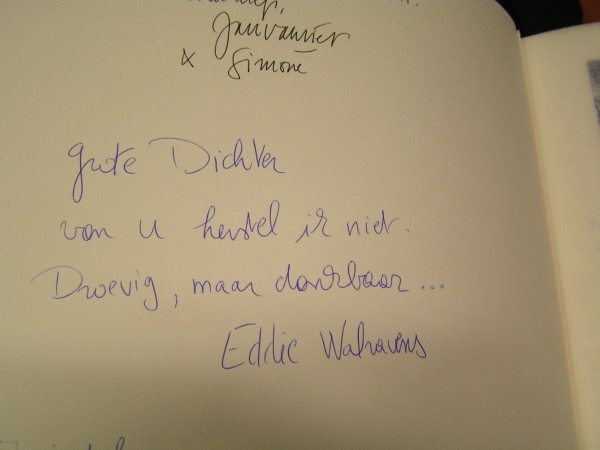 Janvanriet
& Simone
grote Dichter
van u herstel ik niet.
Droevig, maar dankbaar...
Eddie Walravens